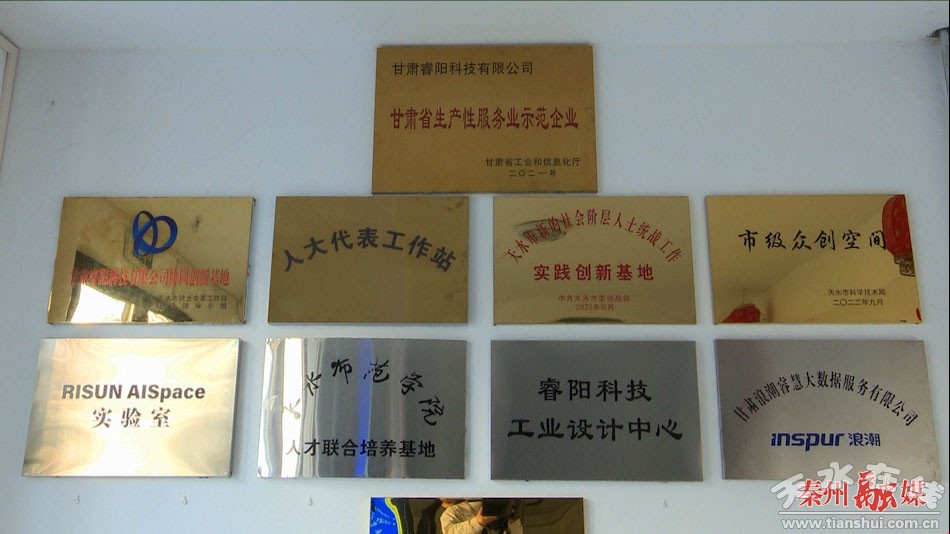 甘肃睿阳科技有限公司
甘肃省生产性服务业示范企业
甘肃省工业和信息化厅
二〇二一年
人大代表工作站
天水市新的社会阶层人士统战工作
实践创新基地
中共天水市委统战部
2020年10月
市级众创空间
天水市科学技术局
二〇二二年九月
有限公司协同创新基地
RISUN AISpace
实验室
天水师范学院
人才联合培养基地
睿阳科技
工业设计中心
甘肃浪潮睿慧大数据服务有限公司
inspur 浪潮
秦州融媒
天水在线
www.tianshui.com.cn